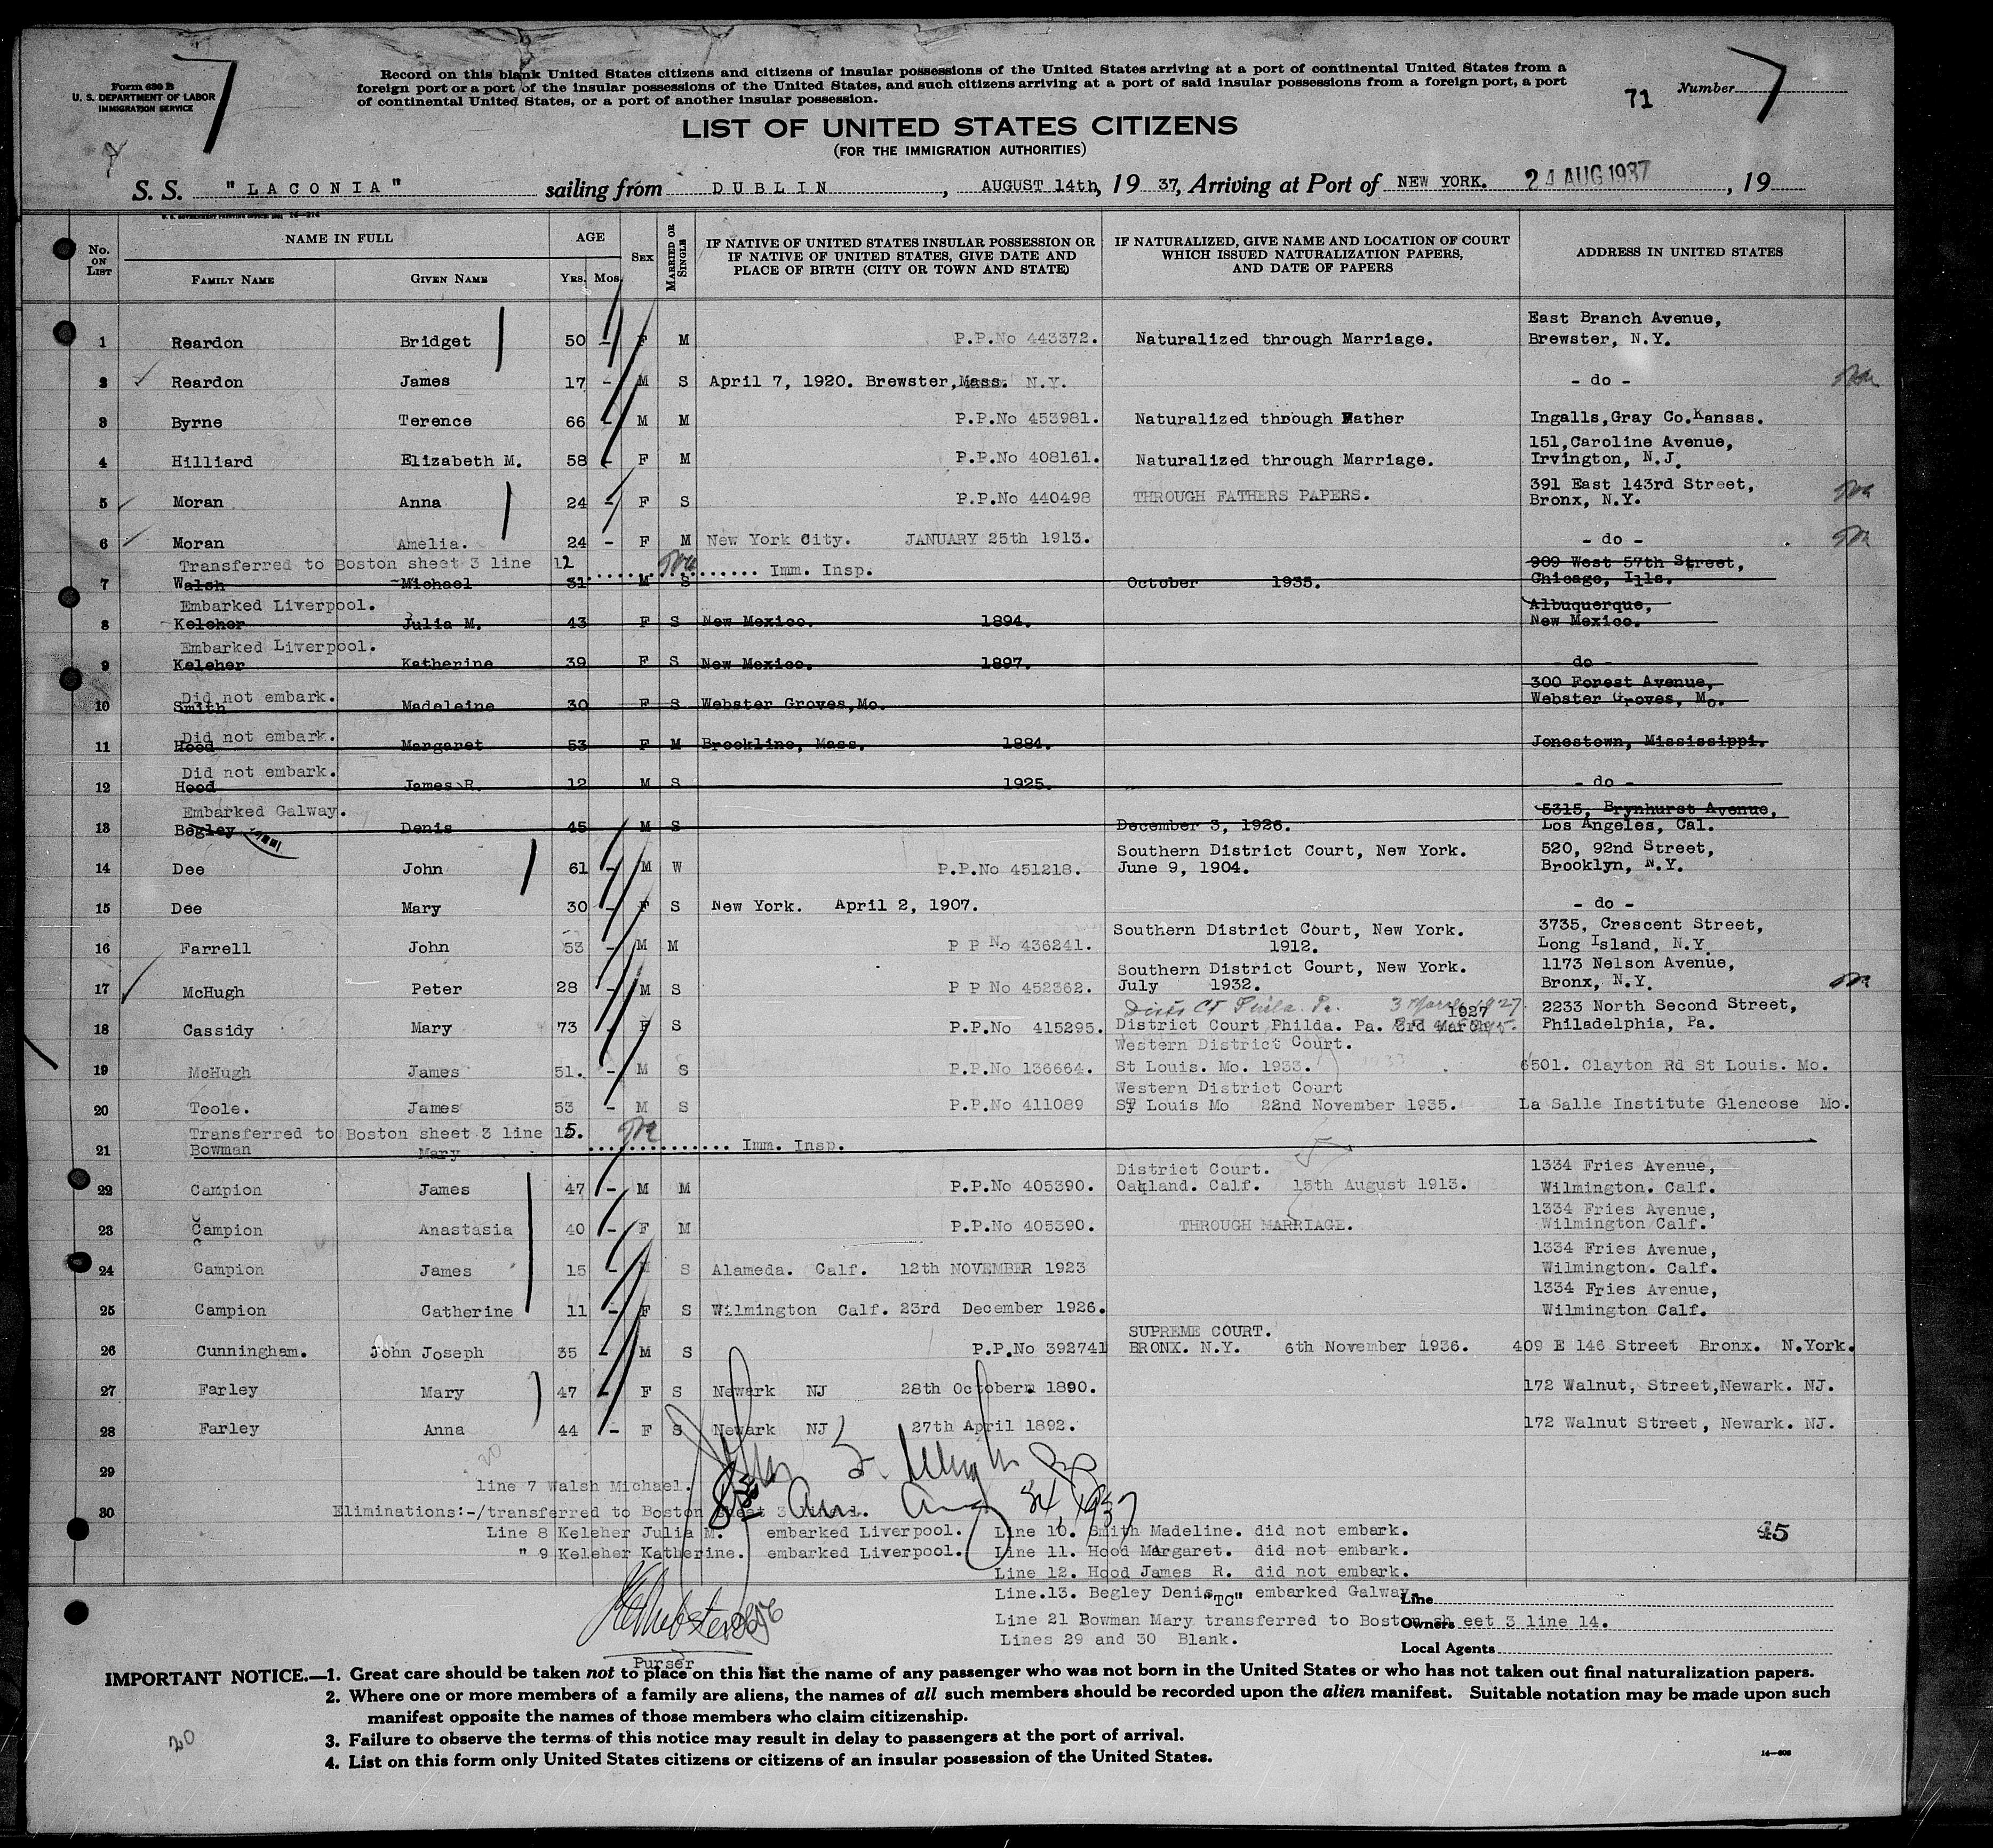 7
Form 630 B
U. S. DEPARTMENT OF LABOR
IMMIGRATION SERVICE
Record on this blank United States citizens and citizens of insular possessions of the United States arriving at a port of continental United States from a
foreign port or a port of the insular possessions of the United States, and such citizens arriving at a port of said insular possessions from a foreign port, a port
of continental United States, or a port of another insular possession.
71 Number 7
LIST OF UNITED STATES CITIZENS
(FOR THE IMMIGRATION AUTHORITIES)
S. S. "LACONIA" sailing from DUBLIN, AUGUST 14th, 19 37, Arriving at Port of NEW YORK. 24 AUG 1937, 19
No. ON LIST NAME IN FULL FAMILY NAME GIVEN NAME AGE YRS. MOS. SEX MARRIED OR SINGLE IF NATIVE OF UNITED STATES INSULAR POSSESSION OR IF NATIVE OF UNITED STATES, GIVE DATE AND PLACE OF BIRTH (CITY OR TOWN AND STATE) IF NATURALIZED, GIVE NAME AND LOCATION OF COURT WHICH ISSUED NATURALIZATION PAPERS, AND DATE OF PAPERS ADDRESS IN UNITED STATES
East Branch Avenue,
1 Reardon Bridget 50 - F M P.P.No 443372. Naturalized through Marriage. Brewster, N.Y.
2 Reardon James 17 - M S April 7, 1920. Brewster, Mass. N.Y. - do -
3 Byrne Terence 66 - M M P.P.No 453981. Naturalized through Father Ingalls, Gray Co. Kansas.
151, Caroline Avenue,
4 Hilliard Elizabeth M. 58 - F M P.P.No 408161. Naturalized through Marriage. Irvington, N.J.
391 East 143rd Street,
5 Moran Anna 24 - F S P.P.No 440498 THROUGH FATHERS PAPERS. Bronx, N.Y.
6 Moran Amelia. 24 - F M New York City. JANUARY 25th 1913. - do -
Transferred to Boston sheet 3 line 12 ............... Imm. Insp. 909 West 57th Street,
7 Walsh Michael 31 M S October 1935. Chicago, Ills.
Embarked Liverpool. Albuquerque,
8 Keleher Julia M. 43 F S New Mexico. 1894. New Mexico.
Embarked Liverpool.
9 Keleher Katherine 39 F S New Mexico. 1897. - do -
Did not embark. 300 Forest Avenue,
10 Smith Madeleine 30 F S Webster Groves, Mo. Webster Groves, Mo.
Did not embark.
11 Hood Margaret 53 F M Brookline, Mass. 1884. Jonestown, Mississippi.
Did not embark.
12 Hood James R. 12 M S 1925. - do -
Embarked Galway. 5315, Brynhurst Avenue,
13 Begley Denis 45 M S December 3, 1926. Los Angeles, Cal.
Southern District Court, New York. 520, 92nd Street,
14 Dee John 61 - M W P.P.No 451218. June 9, 1904. Brooklyn, N.Y.
15 Dee Mary 30 - F S New York. April 2, 1907. - do -
Southern District Court, New York. 3735, Crescent Street,
16 Farrell John 53 - M M P P No 436241. 1912. Long Island, N.Y.
Southern District Court, New York. 1173 Nelson Avenue,
17 McHugh Peter 28 - M S P P NO 452362. July 1932. Bronx, N.Y.
1927 2233 North Second Street,
18 Cassidy Mary 73 - F S P.P.No 415295. District Court Philda. Pa. 3rd March Philadelphia, Pa.
Western District Court.
19 McHugh James 51. - M S P.P.No 136664. St Louis. Mo. 1933. 6501. Clayton Rd St Louis. Mo.
Western District Court
20 Toole. James 53 - M S P.P.NO 411089 St Louis Mo 22nd November 1935. La Salle Institute Glencose Mo.
Transferred to Boston sheet 3 line 15. ............... Imm. Insp.
21 Bowman Mary
District Court. 1334 Fries Avenue,
22 Campion James 47 - M M P.P.No 405390. Oakland. Calf. 15th August 1913. Wilmington. Calf.
1334 Fries Avenue,
23 Campion Anastasia 40 - F M P.P.No 405390. THROUGH MARRIAGE. Wilmington Calf.
1334 Fries Avenue,
24 Campion James 15 - M S Alameda. Calf. 12th NOVEMBER 1923 Wilmington. Calf.
1334 Fries Avenue,
25 Campion Catherine 11 - F S Wilmington Calf. 23rd December 1926. Wilmington Calf.
SUPREME COURT.
26 Cunningham. John Joseph 35 - M S P.P.No 392741 BRONX. N.Y. 6th November 1936. 409 E 146 Street Bronx. N.York.
27 Farley Mary 47 - F S Newark NJ 28th October 1890. 172 Walnut, Street, Newark. NJ.
28 Farley Anna 44 - F S Newark NJ 27th April 1892. 172 Walnut Street, Newark. NJ.
29
line 7 Walsh Michael.
30 Eliminations:-/transferred to Boston sheet 3
Line 8 Keleher Julia M. embarked Liverpool. Line 10. Smith Madeline. did not embark. 45
" 9 Keleher Katherine. embarked Liverpool. Line 11. Hood Margaret. did not embark.
Line 12. Hood James R. did not embark.
Line.13. Begley Denis "TC" embarked Galway. Line
Line 21 Bowman Mary transferred to Boston sheet 3 line 14. Owners
Lines 29 and 30 Blank. Local Agents
Purser
IMPORTANT NOTICE.—1. Great care should be taken not to place on this list the name of any passenger who was not born in the United States or who has not taken out final naturalization papers.
2. Where one or more members of a family are aliens, the names of all such members should be recorded upon the alien manifest. Suitable notation may be made upon such
manifest opposite the names of those members who claim citizenship.
3. Failure to observe the terms of this notice may result in delay to passengers at the port of arrival.
4. List on this form only United States citizens or citizens of an insular possession of the United States.
20